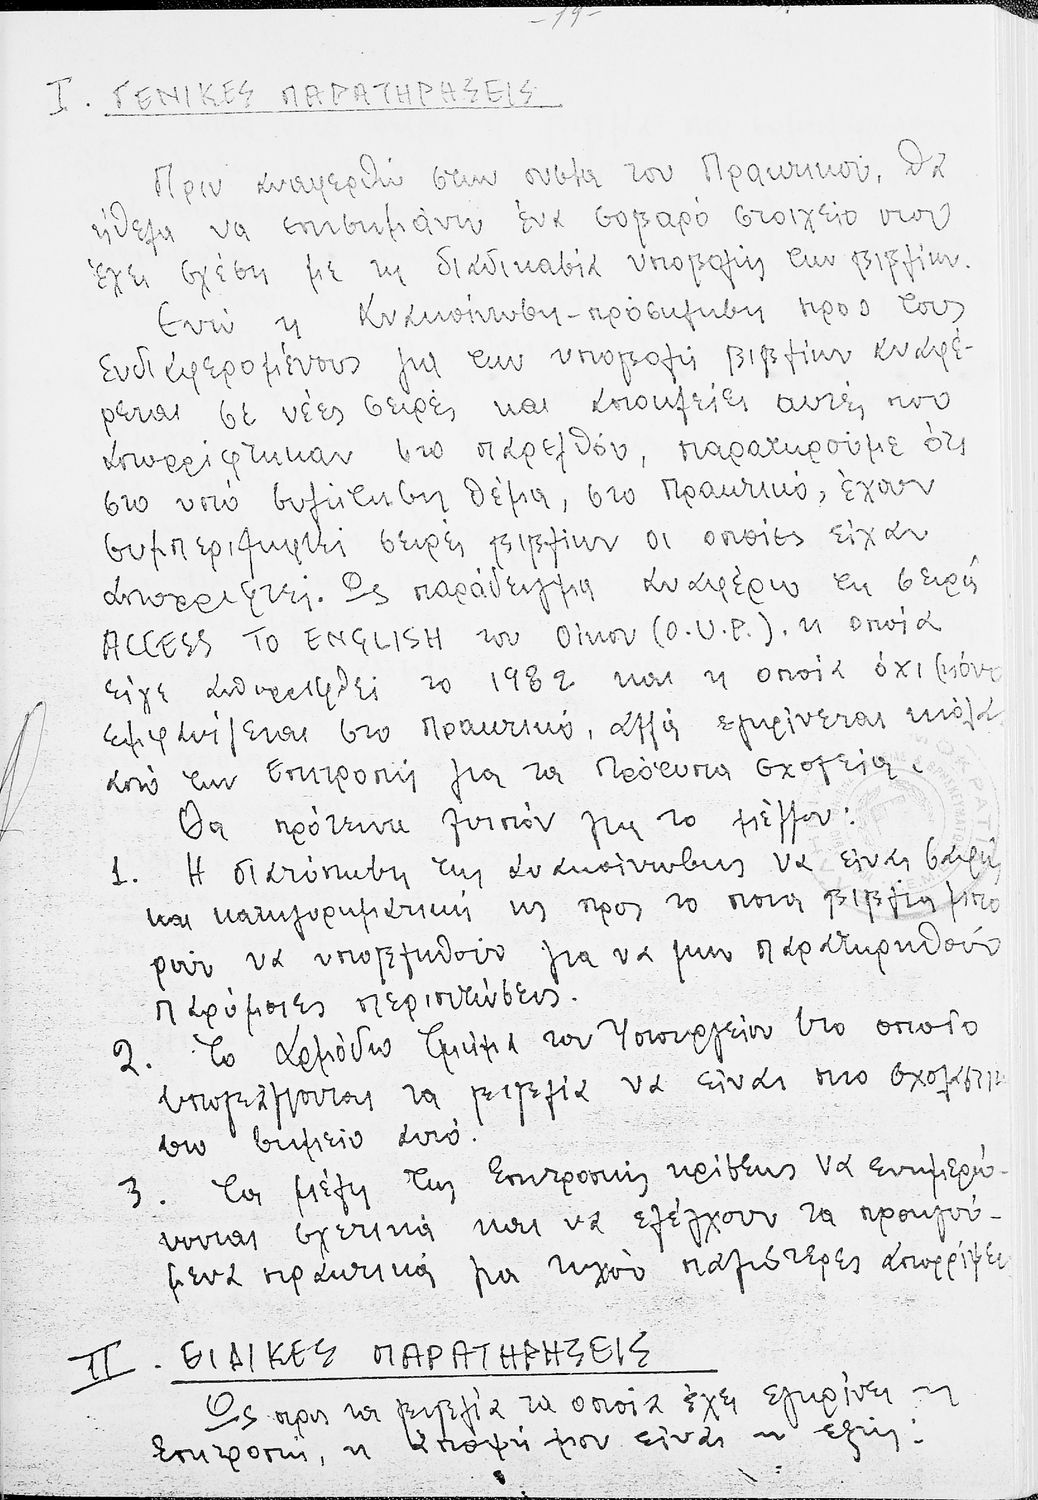 -19-
I. ΓΕΝΙΚΕΣ ΠΑΡΑΤΗΡΗΣΕΙΣ
Πριν αναφερθώ στην ουσία του Πρακτικού, θα
ήθελα να επισημάνω ένα σοβαρό στοιχείο που
έχει σχέση με τη διαδικασία υποβολής των βιβλίων.
Ενώ η Ανακοίνωση-πρόσκληση προς τους
ενδιαφερομένους για την υποβολή βιβλίων αναφέ-
ρεται σε νέες σειρές και αποκλείει αυτές που
απορρίφτηκαν στο παρελθόν, παρατηρούμε ότι
στο υπό συζήτηση θέμα, στο Πρακτικό, έχουν
συμπεριληφθεί σειρές βιβλίων οι οποίες είχαν
απορριφτεί. Ως παράδειγμα αναφέρω τη σειρά
ACCESS TO ENGLISH του Οίκου (O.U.P.). η οποία
είχε απορριφθεί το 1982 και η οποία όχι μόνο
εμφανίζεται στο Πρακτικό, αλλά εγκρίνεται κιόλας
από την Επιτροπή για τα Πρότυπα Σχολεία.
Θα πρότεινα λοιπόν για το μέλλον:
1. Η διατύπωση της ανακοίνωσης να είναι σαφής
και κατηγορηματική ως προς το ποια βιβλία μπο
ρούν να υποβληθούν για να μην παρατηρηθούν
παρόμοιες περιπτώσεις.
2. Το Αρμόδιο Τμήμα του Υπουργείου στο οποίο
υποβάλλονται τα βιβλία να είναι πιο σχολαστικ
στο σημείο αυτό.
3. Τα μέλη της Επιτροπής κρίσεως να ενημερώ-
νονται σχετικά και να ελέγχουν τα προηγού-
μενα πρακτικά για τυχόν παλιότερες απορρίψεις
II. ΕΙΔΙΚΕΣ ΠΑΡΑΤΗΡΗΣΕΙΣ
Ως προς τα βιβλία τα οποία έχει εγκρίνει η
Επιτροπή, η άποψή μου είναι η εξής: